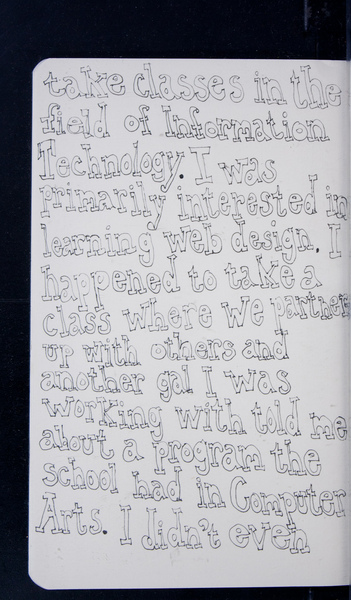 take classes in the
field of Information
Technology. I was
primarily interested in
learning web design. I
happened to take a
class where we partner
up with others and
another gal I was
working with told me
about a program the
school had in Computer
Arts. I didn't even